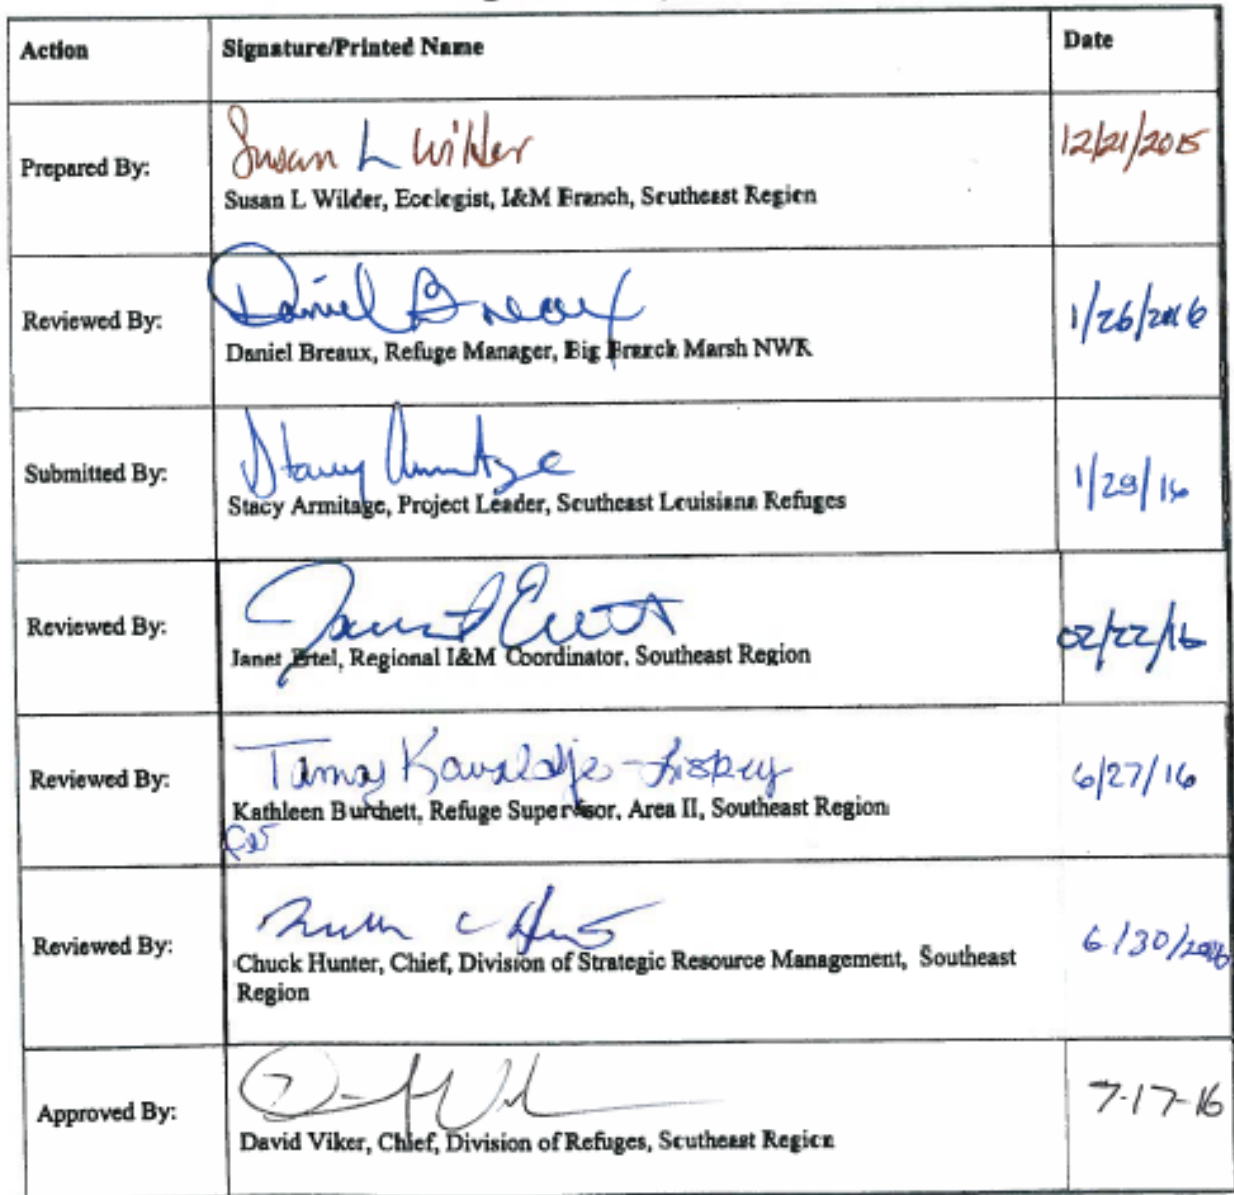 Action Signature/Printed Name Date
Prepared By: Susan L Wilder 12/21/2015
Susan L Wilder, Ecologist, I&M Branch, Southeast Region
Reviewed By: Daniel Breaux 1/26/2016
Daniel Breaux, Refuge Manager, Big Branch Marsh NWR
Submitted By: Stacy Armitage 1/29/16
Stacy Armitage, Project Leader, Southeast Louisiana Refuges
Reviewed By: Janet Ertel 02/22/16
Janet Ertel, Regional I&M Coordinator, Southeast Region
Reviewed By: 6/27/16
Kathleen Burchett, Refuge Supervisor, Area II, Southeast Region
for
Reviewed By: 6/30/2016
Chuck Hunter, Chief, Division of Strategic Resource Management, Southeast
Region
Approved By: 7-17-16
David Viker, Chief, Division of Refuges, Southeast Region